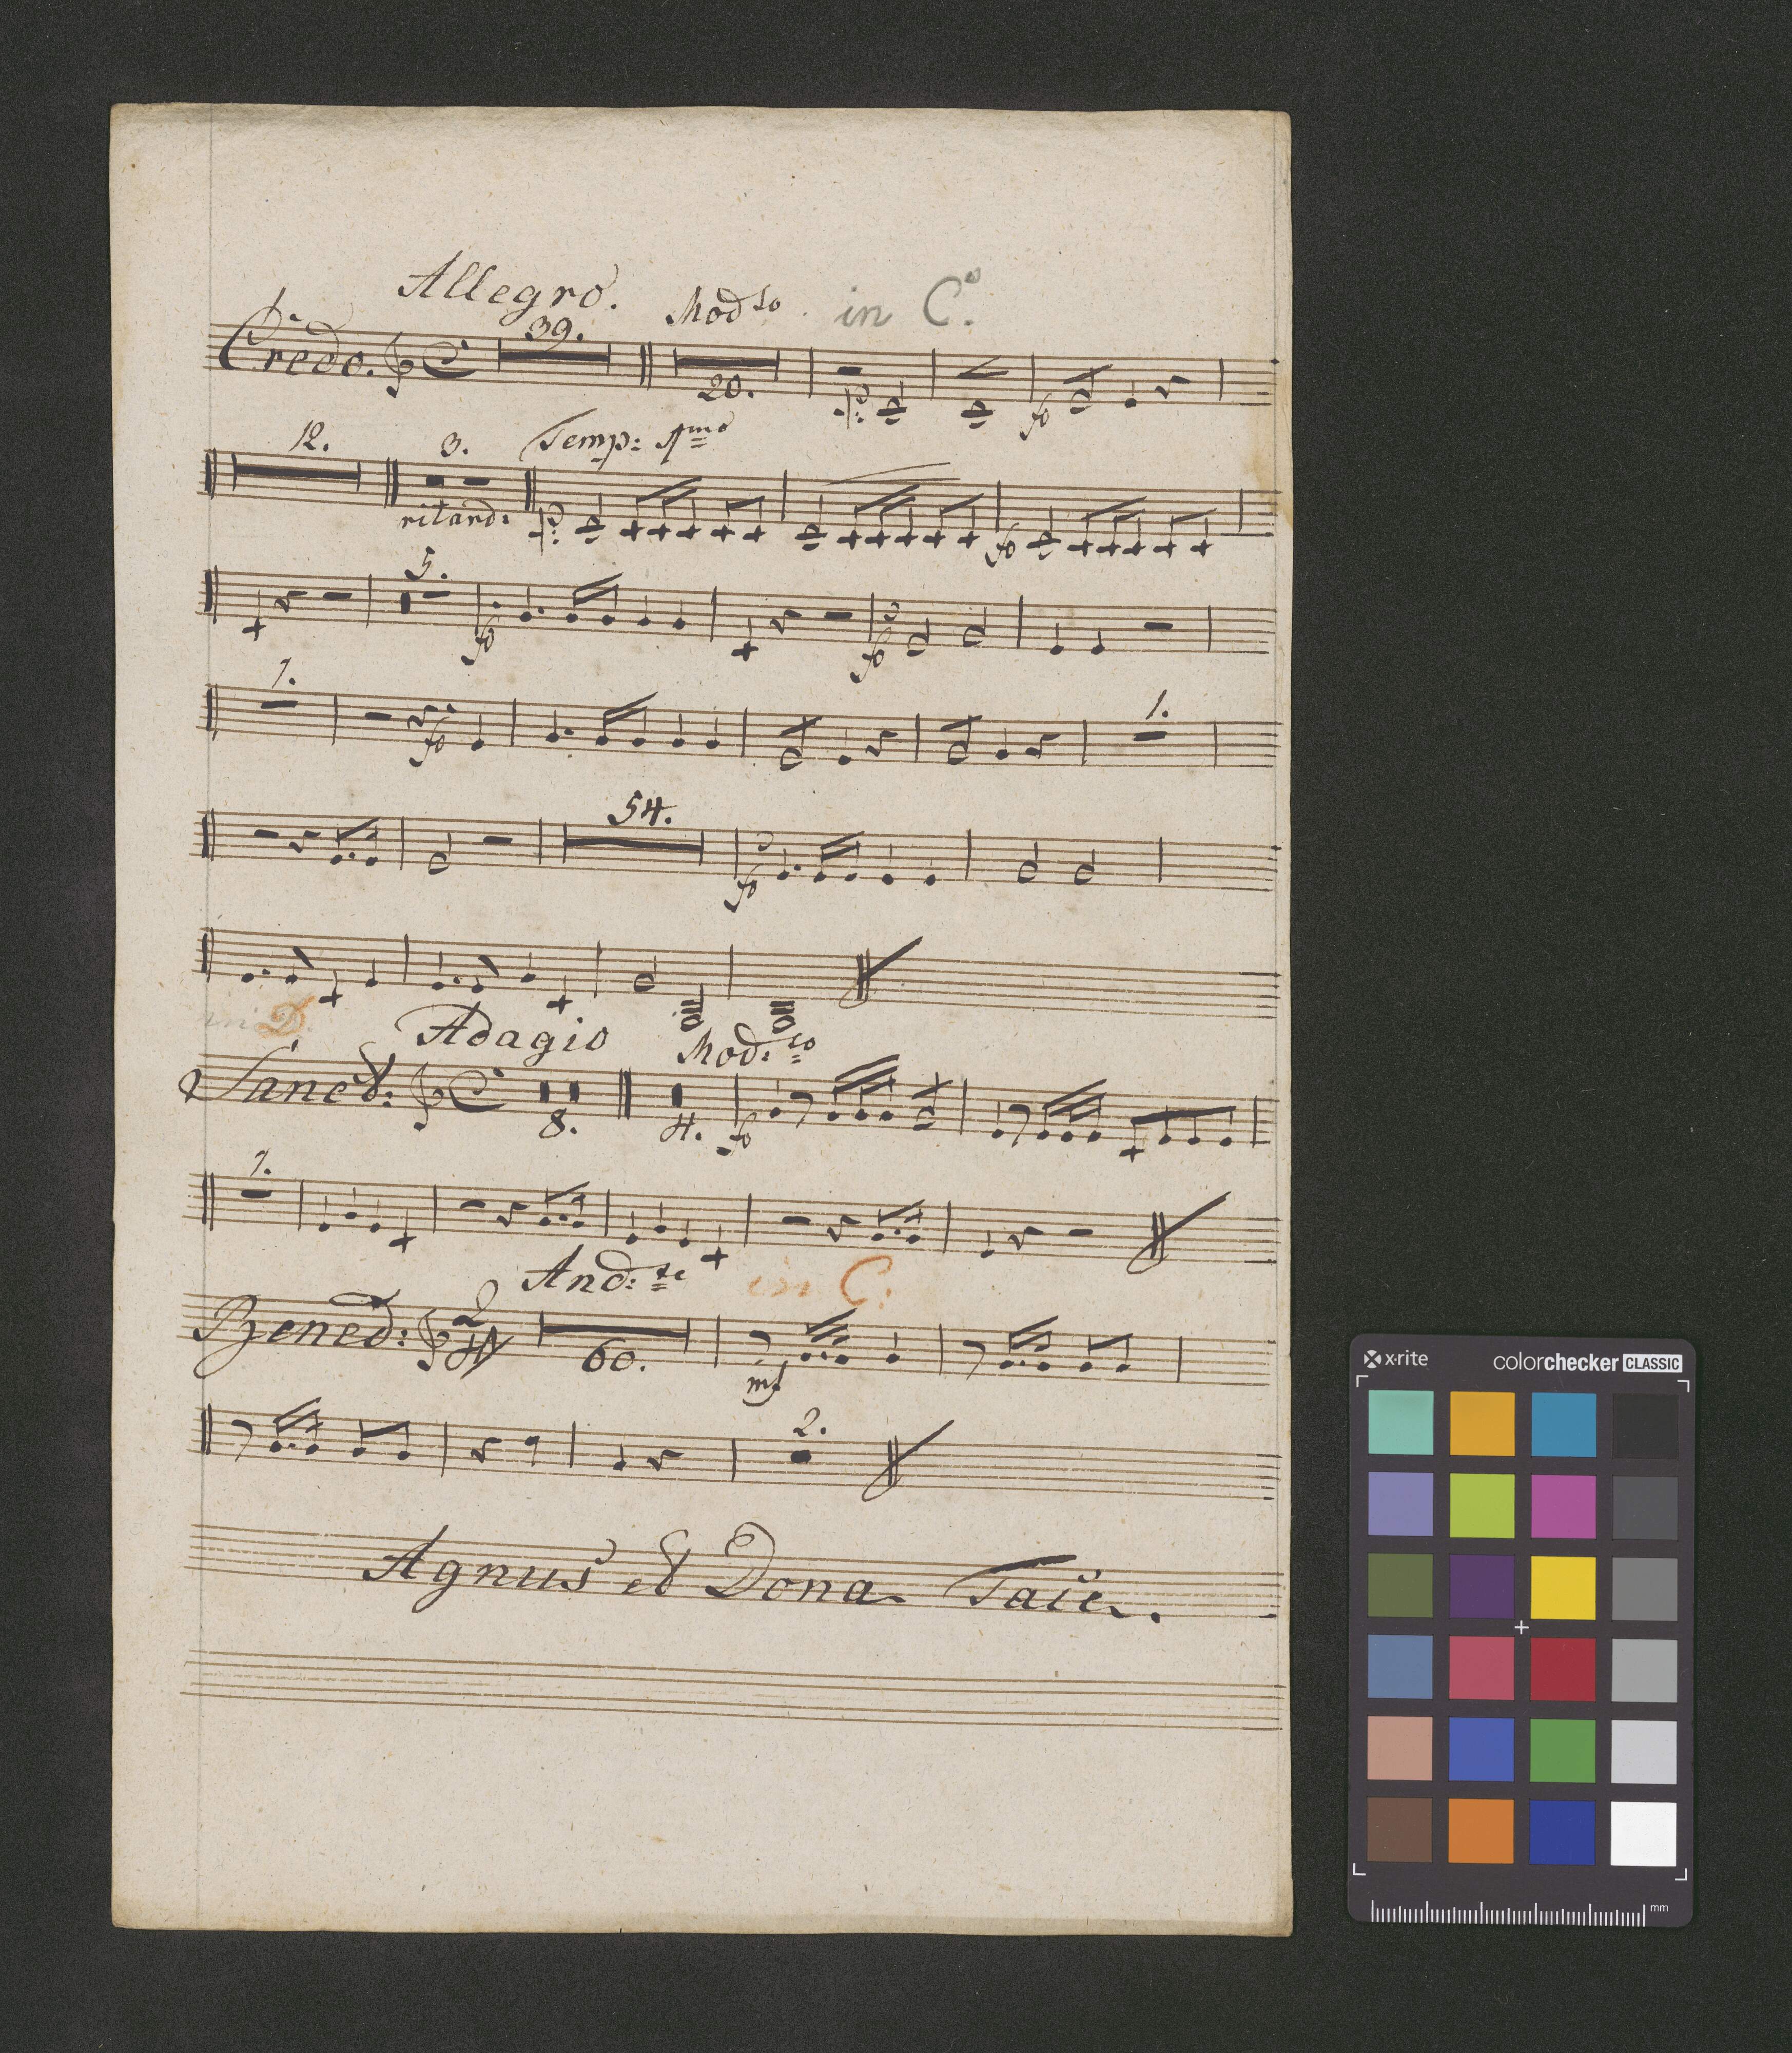 Allegro. Modto. in Co.
Credo. 39. 20. p: fo
12. 3. Temp: 1mo
ritard: p: fo
5. fo fo
1. fo 1.
54. fo
in D. Adagio Mod:to
Sanct: 8. 4. fo
1.
And:te in C.
Bened: 2/4 60. mf
2.
Agnus et Dona Taie.
x·rite colorchecker CLASSIC
mm